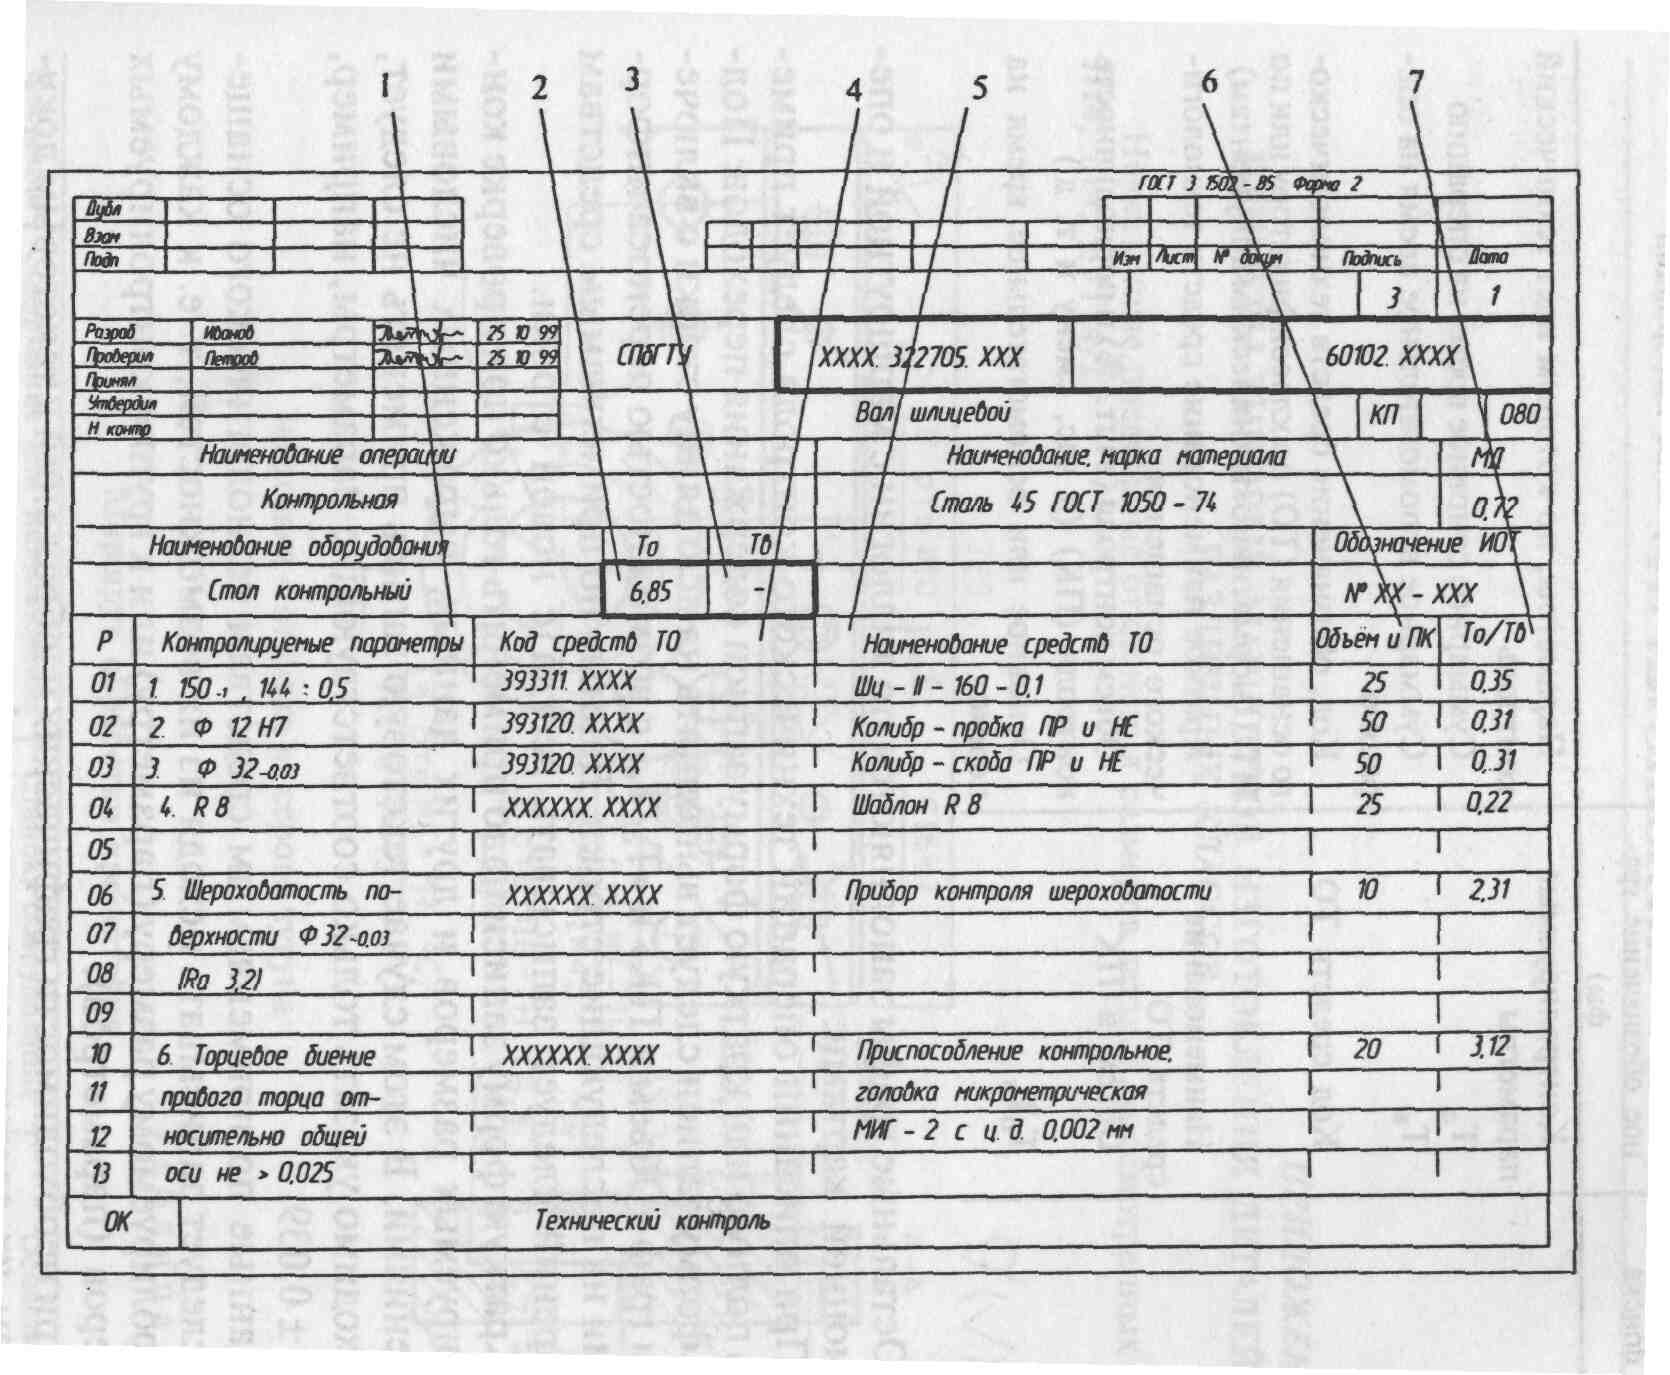 1 2 3 4 5 6 7
ГОСТ 3 1502 - 85 Форма 2
Дубл
Взам
Подп
Изм Лист № докум Подпись Дата
3 1
Разраб Иванов 25 10 99
Проверил Петров 25 10 99
Принял
Утвердил
Н контр
СПбГТУ XXXX. 322705. XXX 60102. XXXX
Вал шлицевой КП 080
Наименование операции Наименование, марка материала МД
Контрольная Сталь 45 ГОСТ 1050 - 74 0,72
Наименование оборудования То Тв Обозначение ИОТ
Стол контрольный 6,85 - № XX - XXX
Р Контролируемые параметры Код средств ТО Наименование средств ТО Объём и ПК То/Тв
01 1. 150-1 , 144 ± 0,5 393311. XXXX Шц - II - 160 - 0,1 25 0,35
02 2. Ф 12 Н7 393120. XXXX Колибр - пробка ПР и НЕ 50 0,31
03 3. Ф 32-0,03 393120. XXXX Колибр - скоба ПР и НЕ 50 0,31
04 4. R 8 XXXXXX. XXXX Шаблон R 8 25 0,22
05
06 5. Шероховатость по- XXXXXX. XXXX Прибор контроля шероховатости 10 2,31
07 верхности Ф 32-0,03
08 (Ra 3,2)
09
10 6. Торцевое биение XXXXXX. XXXX Приспособление контрольное, 20 3,12
11 правого торца от- головка микрометрическая
12 носительно общей МИГ - 2 с ц. д. 0,002 мм
13 оси не > 0,025
ОК Технический контроль